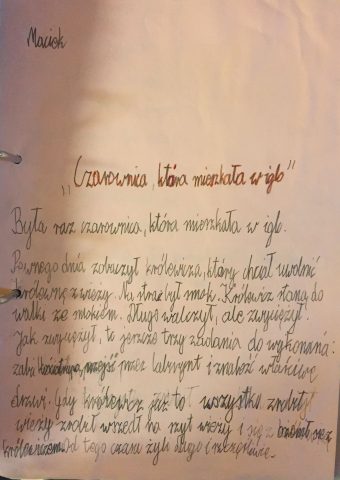 Maciek
„Czarownica, która mieszkała w iglo"
Była raz czarownica, która mieszkała w iglo.
Pewnego dnia zobaczył królewicza, który chciał uwolnić
królewnę z wieży. Na straż był smok. Królewicz staną do
walki ze smokiem. Długo walczył, ale zwyciężył.
Jak zwyciężył, to jeszcze trzy zadania do wykonaną:
przez labirynt i znaleźć właściwe
drzwi. Gdy królewicz już to wszystko zrobił
wieży zrobił wszedł na szyt wieży i się z
królewiczem. Od tego czasu żyli długo i szczęśliwe.